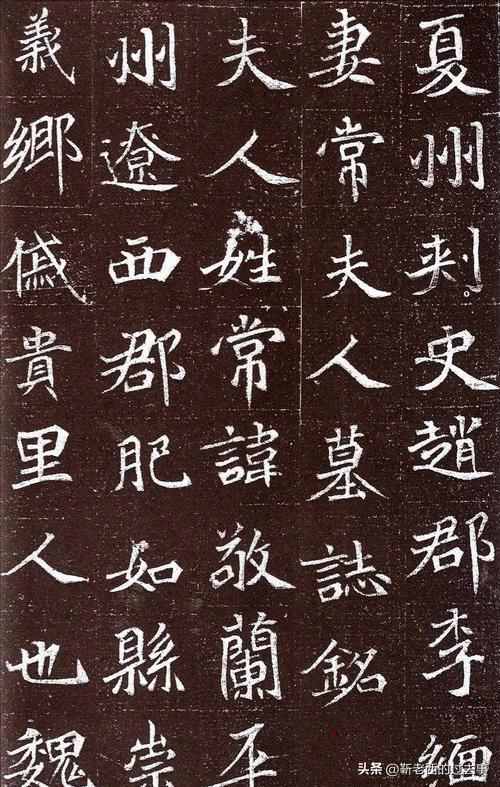 夏州刾史趙郡李緬
妻常夫人墓誌銘
夫人姓常諱敬蘭平
州遼西郡肥如縣崇
義鄉傶貴里人也魏
头条 @靳老西的过去事